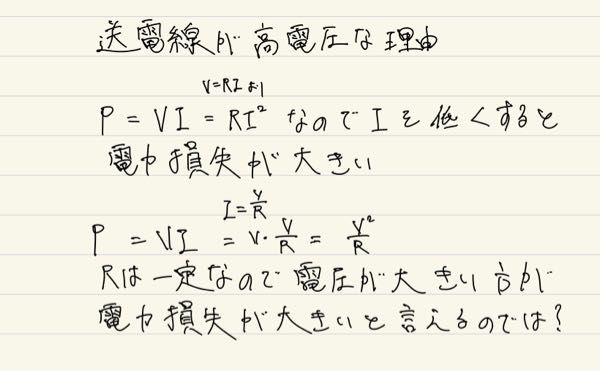 送電線が高電圧な理由
V=RIより
P = VI = RI² なのでIを低くすると
電力損失が大きい
I=V/R
P = VI = V・V/R = V²/R
Rは一定なので電圧が大きい方が
電力損失が大きいと言えるのでは?